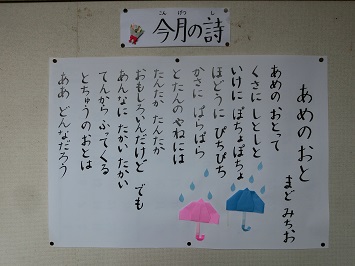 こんげつ し
今月の詩
あめのおと
まど みちお
あめの おとって
くさに しとしと
いけに ぽちょぽちょ
ほどうに ぴちぴち
かさに ぱらぱら
とたんの やねには
たんたか たんたか
おもしろいんだけど でも
あんなに たかい たかい
てんから ふってくる
とちゅうの おとは
ああ どんなだろう